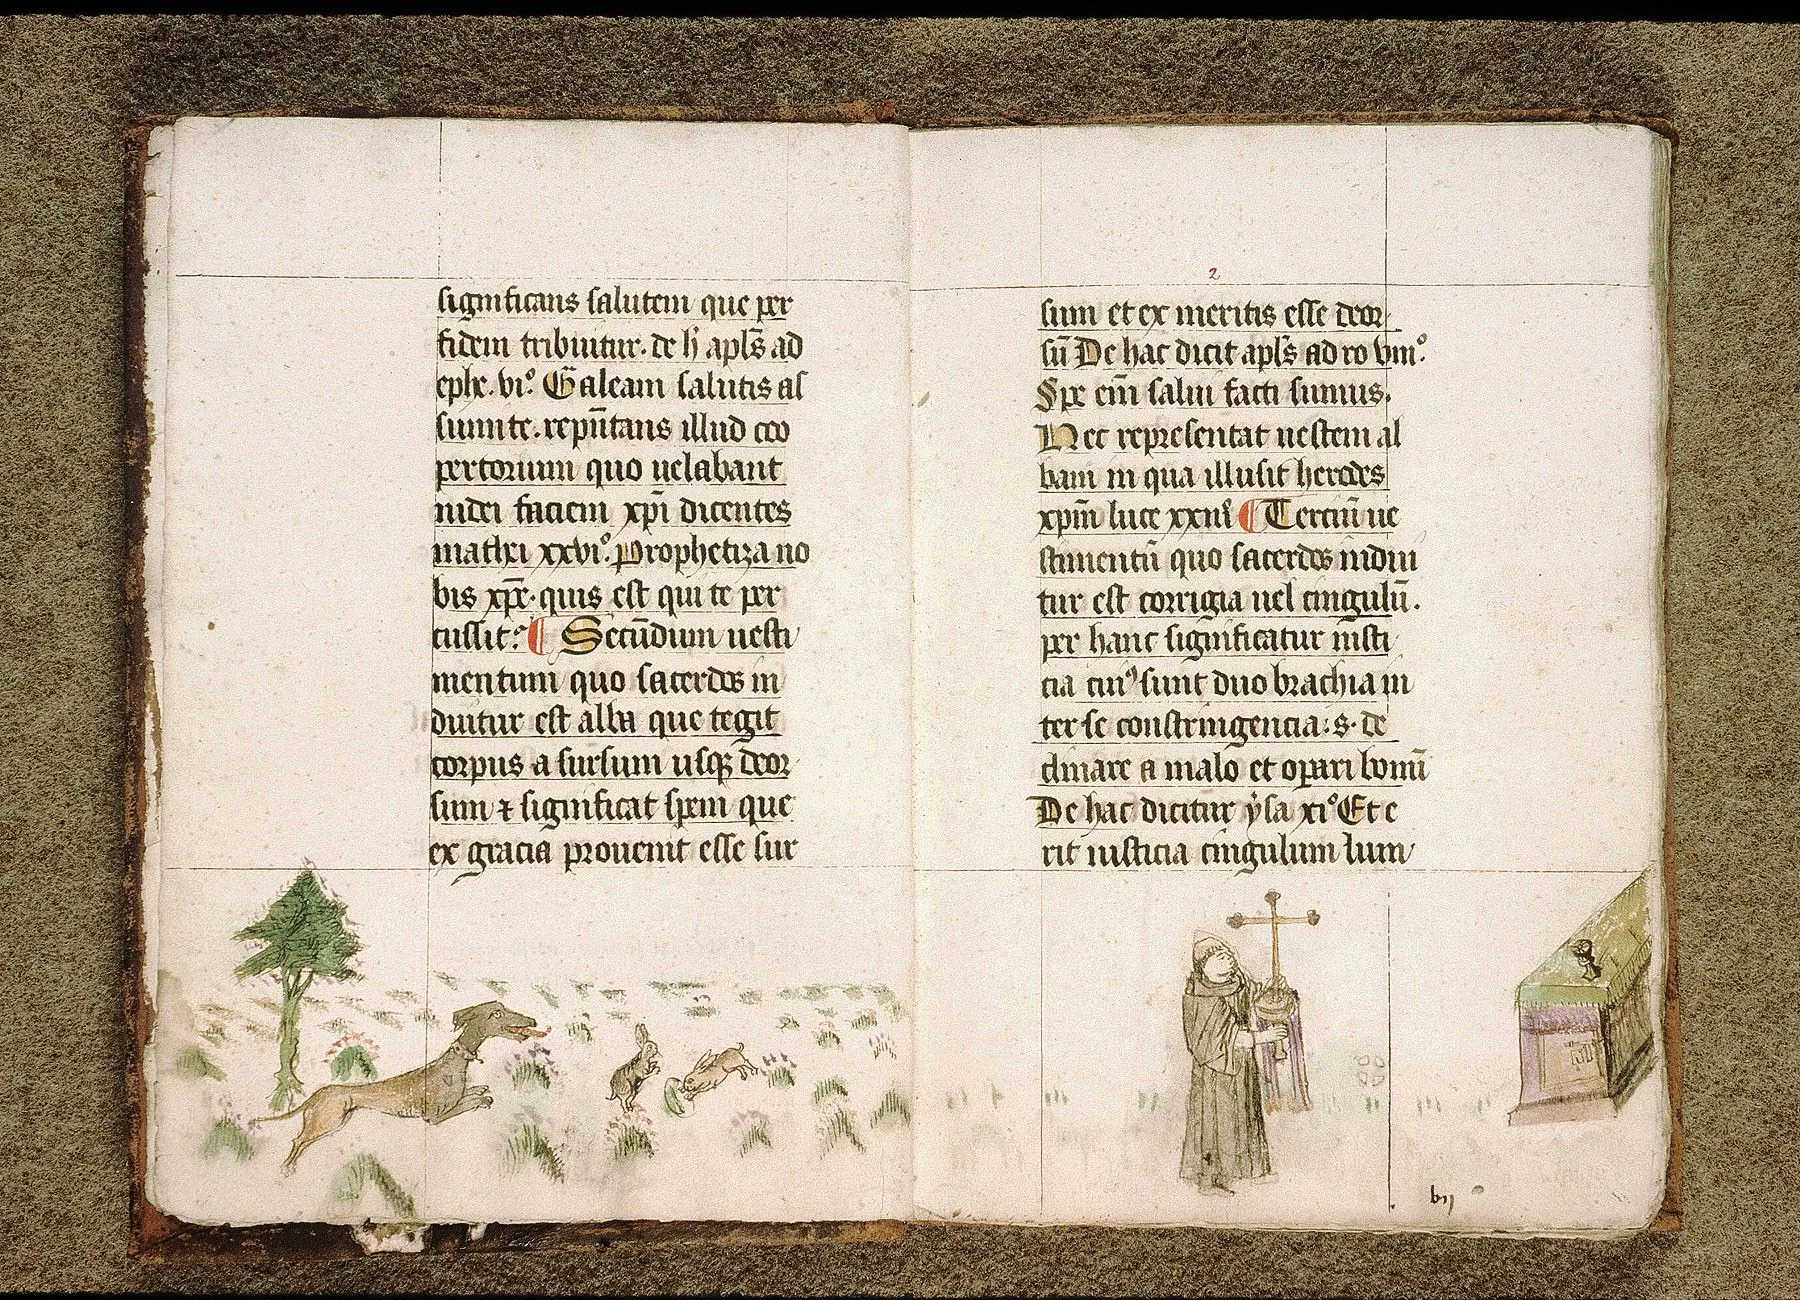 significans salutem que per
fidem tribuitur. de h' apl's ad
ephe. vi°. Galeam salutis as
sumite. rep̄ntans illud coo
pertorium quo uelabant
iudei faciem xp̄i dicentes
mathei xxvi°. Prophetiza no
bis xp̄e. quis est qui te per
cussit? ¶ Secūdum uesti
mentum quo sacerdos in
duitur est alba que tegit
corpus a sursum usqꝫ deor
sum ⁊ significat spem que
ex gracia prouenit esse sur
2
sum et ex meritis esse deor
sū De hac dicit apl's ad ro viii°.
Spe em̄ salui facti sumus.
Hec representat uestem al
bam in qua illusit herodes
xpm̄ luce xxiii° ¶ Terciū ue
stimentū quo sacerdos indui
tur est corrigia uel cingulū.
per hanc significatur iusti
cia cui⁹ sunt duo brachia in
ter se constringencia: s. de
clinare a malo et oꝑari bonū
De hac dicitur ysa xi° Et e
rit iusticia cingulum lum
bij